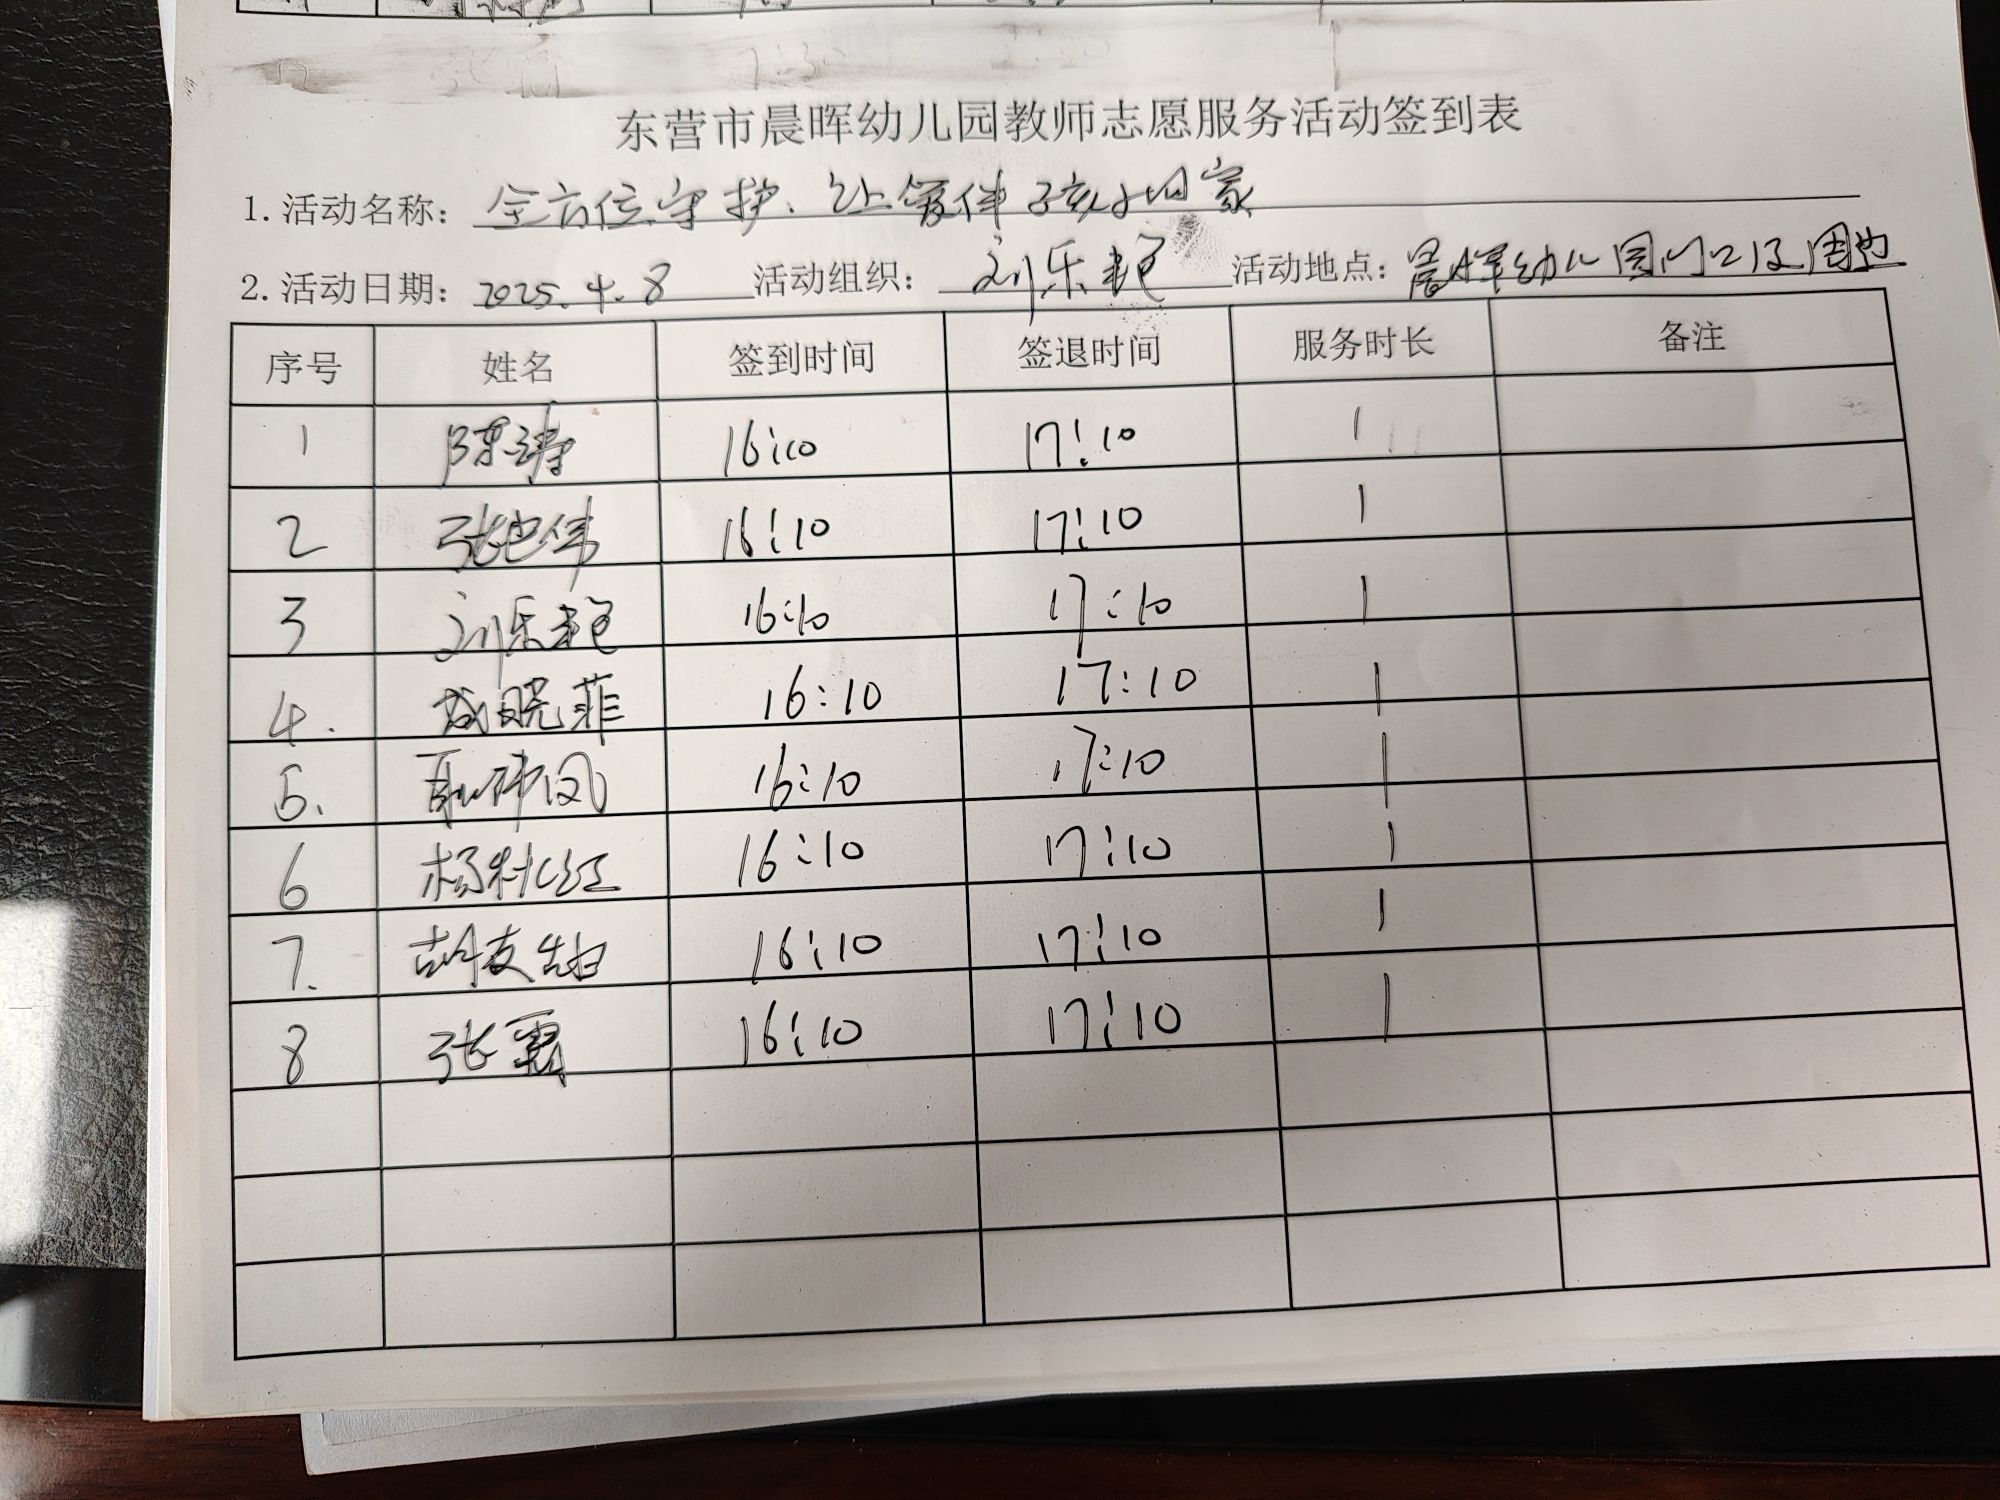 东营市晨晖幼儿园教师志愿服务活动签到表
1.活动名称：全方位守护、让爱伴孩子回家
2.活动日期：2025.4.8 活动组织：刘乐艳 活动地点：晨晖幼儿园门口及周边
序号 姓名 签到时间 签退时间 服务时长 备注
1 陈涛 16:10 17:10 1
2 张世伟 16:10 17:10 1
3 刘乐艳 16:10 17:10 1
4. 晓菲 16:10 17:10 1
5. 16:10 17:10 1
6 杨 红 16:10 17:10 1
7. 胡友 16:10 17:10 1
8 张霞 16:10 17:10 1